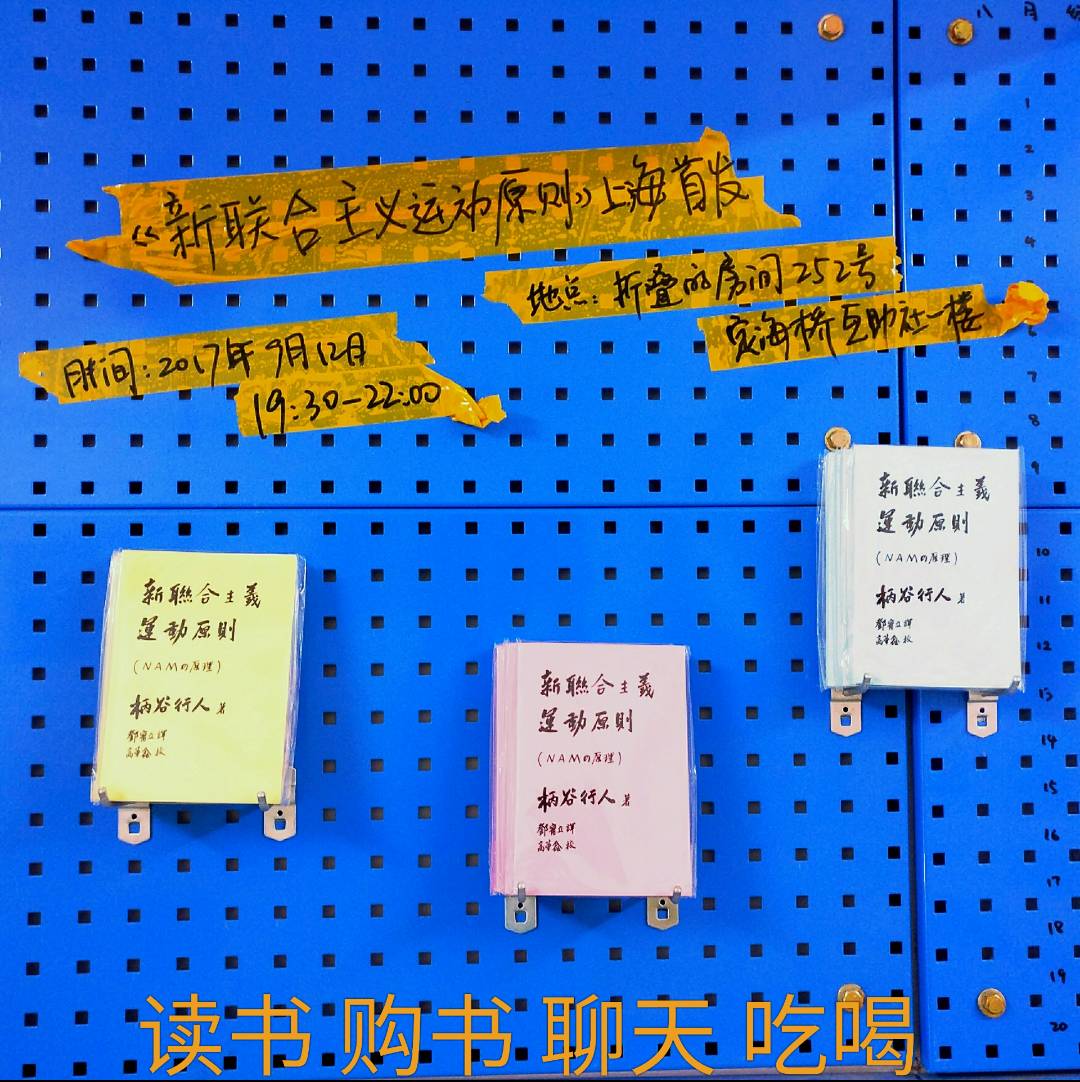 《新联合主义运动原则》上海首发
地点：折叠的房间252号
定海桥互助社一楼
时间：2017年9月12日
19:30-22:00
八月份
1
2
3
4
6
7
8
9
10
11
12
13
14
15
16
17
18
19
20
新聯合主義
運動原則
(NAMの原理)
柄谷行人 著
新聯合主義
運動原則
(NAMの原理)
柄谷行人 著
新聯合主義
運動原則
(NAMの原理)
柄谷行人 著
读书 购书 聊天 吃喝